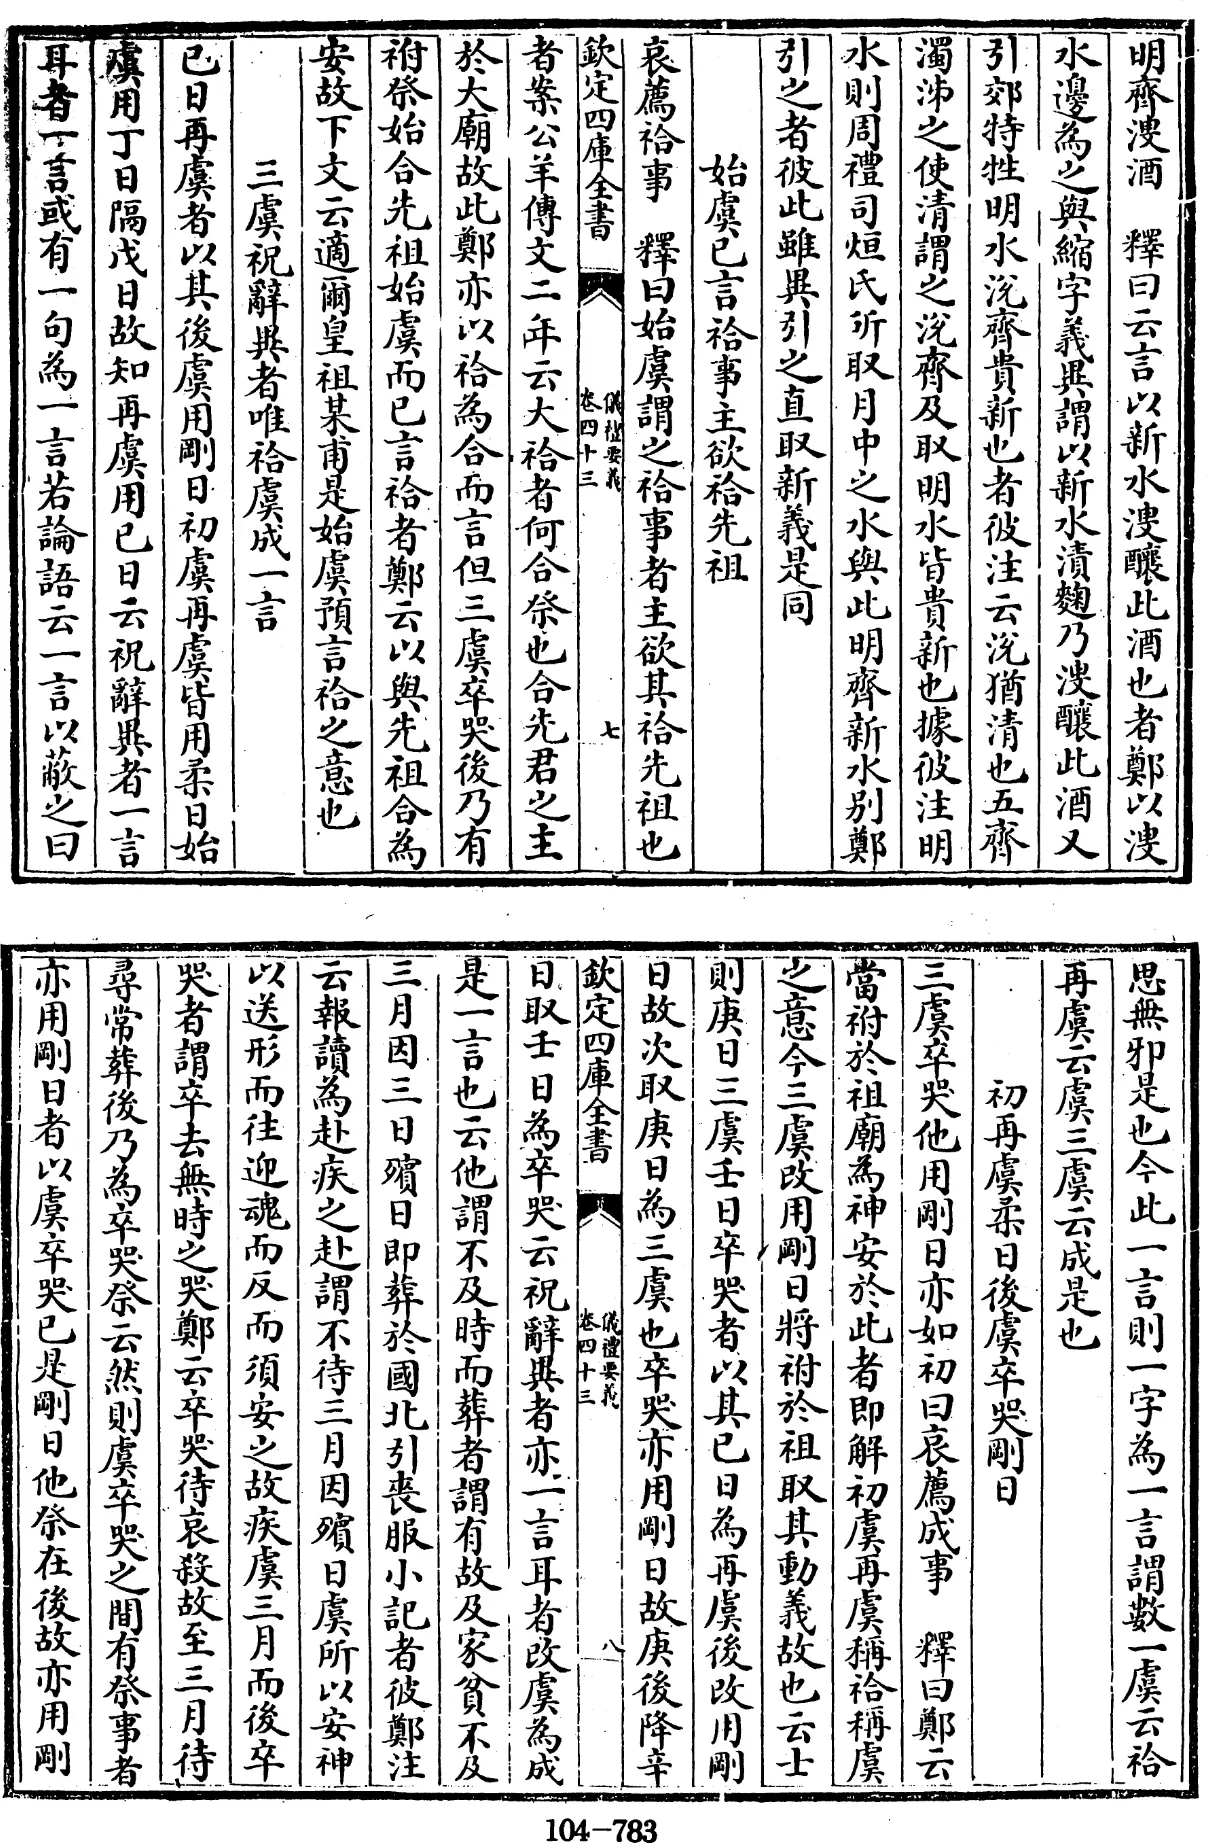 明齊溲酒　釋曰云言以新水溲釀此酒也者鄭以溲
水邊為之與縮字義異謂以新水漬麴乃溲釀此酒又
引郊特牲明水涗齊貴新也者彼注云涗猶清也五齊
濁泲之使清謂之涗齊及取明水皆貴新也據彼注明
水則周禮司烜氏所取月中之水與此明齊新水別鄭
引之者彼此雖異引之直取新義是同
始虞已言祫事主欲祫先祖
哀薦祫事　釋曰始虞謂之祫事者主欲其祫先祖也
欽定四庫全書
儀禮要義
卷四十三
七
者案公羊傳文二年云大祫者何合祭也合先君之主
於大廟故此鄭亦以祫為合而言但三虞卒哭後乃有
祔祭始合先祖始虞而已言祫者鄭云以與先祖合為
安故下文云適爾皇祖某甫是始虞預言祫之意也
三虞祝辭異者唯祫虞成一言
已日再虞者以其後虞用剛日初虞再虞皆用柔日始
虞用丁日隔戊日故知再虞用已日云祝辭異者一言
耳者一言或有一句為一言若論語云一言以蔽之曰
思無邪是也今此一言則一字為一言謂數一虞云祫
再虞云虞三虞云成是也
初再虞柔日後虞卒哭剛日
三虞卒哭他用剛日亦如初曰哀薦成事　釋曰鄭云
當祔於祖廟為神安於此者即解初虞再虞稱祫稱虞
之意今三虞改用剛日將祔於祖取其動義故也云士
則庚日三虞壬日卒哭者以其已日為再虞後改用剛
日故次取庚日為三虞也卒哭亦用剛日故庚後降辛
欽定四庫全書
儀禮要義
卷四十三
八
日取壬日為卒哭云祝辭異者亦一言耳者改虞為成
是一言也云他謂不及時而葬者謂有故及家貧不及
三月因三日殯日即葬於國北引喪服小記者彼鄭注
云報讀為赴疾之赴謂不待三月因殯日虞所以安神
以送形而往迎魂而反而須安之故疾虞三月而後卒
哭者謂卒去無時之哭鄭云卒哭待哀殺故至三月待
尋常葬後乃為卒哭祭云然則虞卒哭之間有祭事者
亦用剛日者以虞卒哭已是剛日他祭在後故亦用剛
104-783